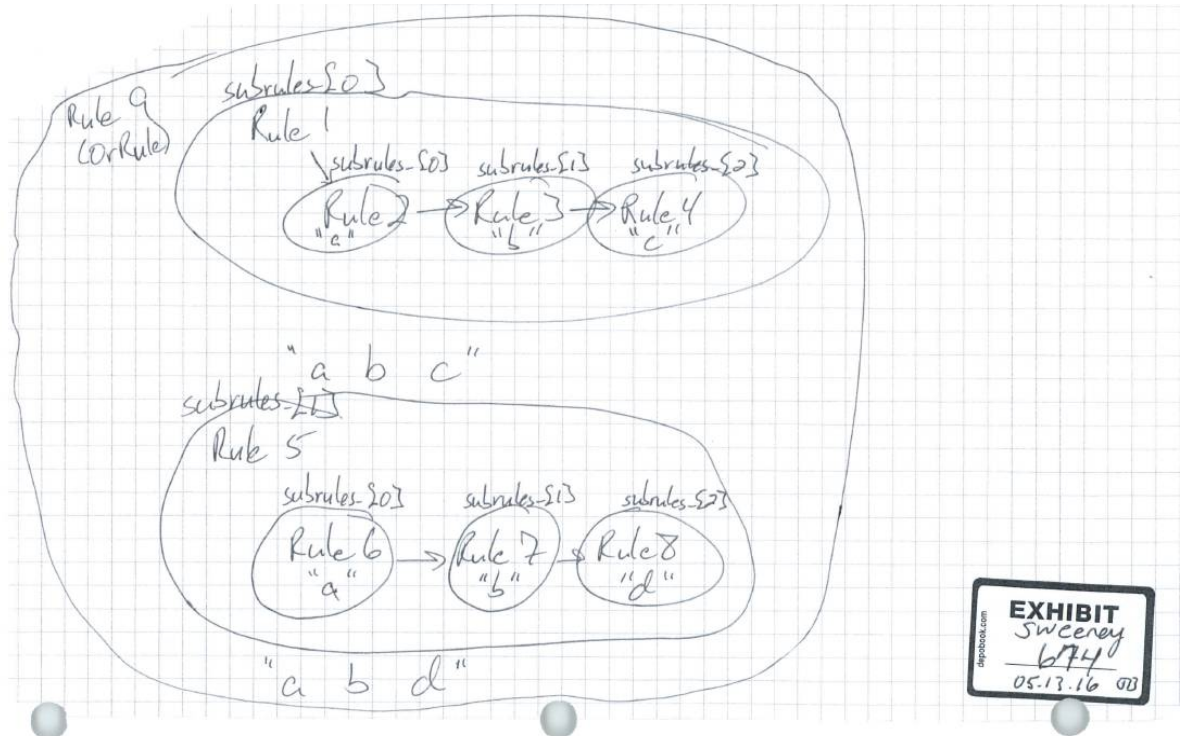 Rule 9
(orRule)
subrules_[0]
Rule 1
subrules_[0] subrules_[1] subrules_[2]
Rule 2 Rule 3 Rule 4
"a" "b" "c"
"a b c"
subrules_[1]
Rule 5
subrules_[0] subrules_[1] subrules_[2]
Rule 6 Rule 7 Rule 8
"a" "b" "d"
"a b d"
depobook.com
EXHIBIT
Sweeney
674
05.13.16